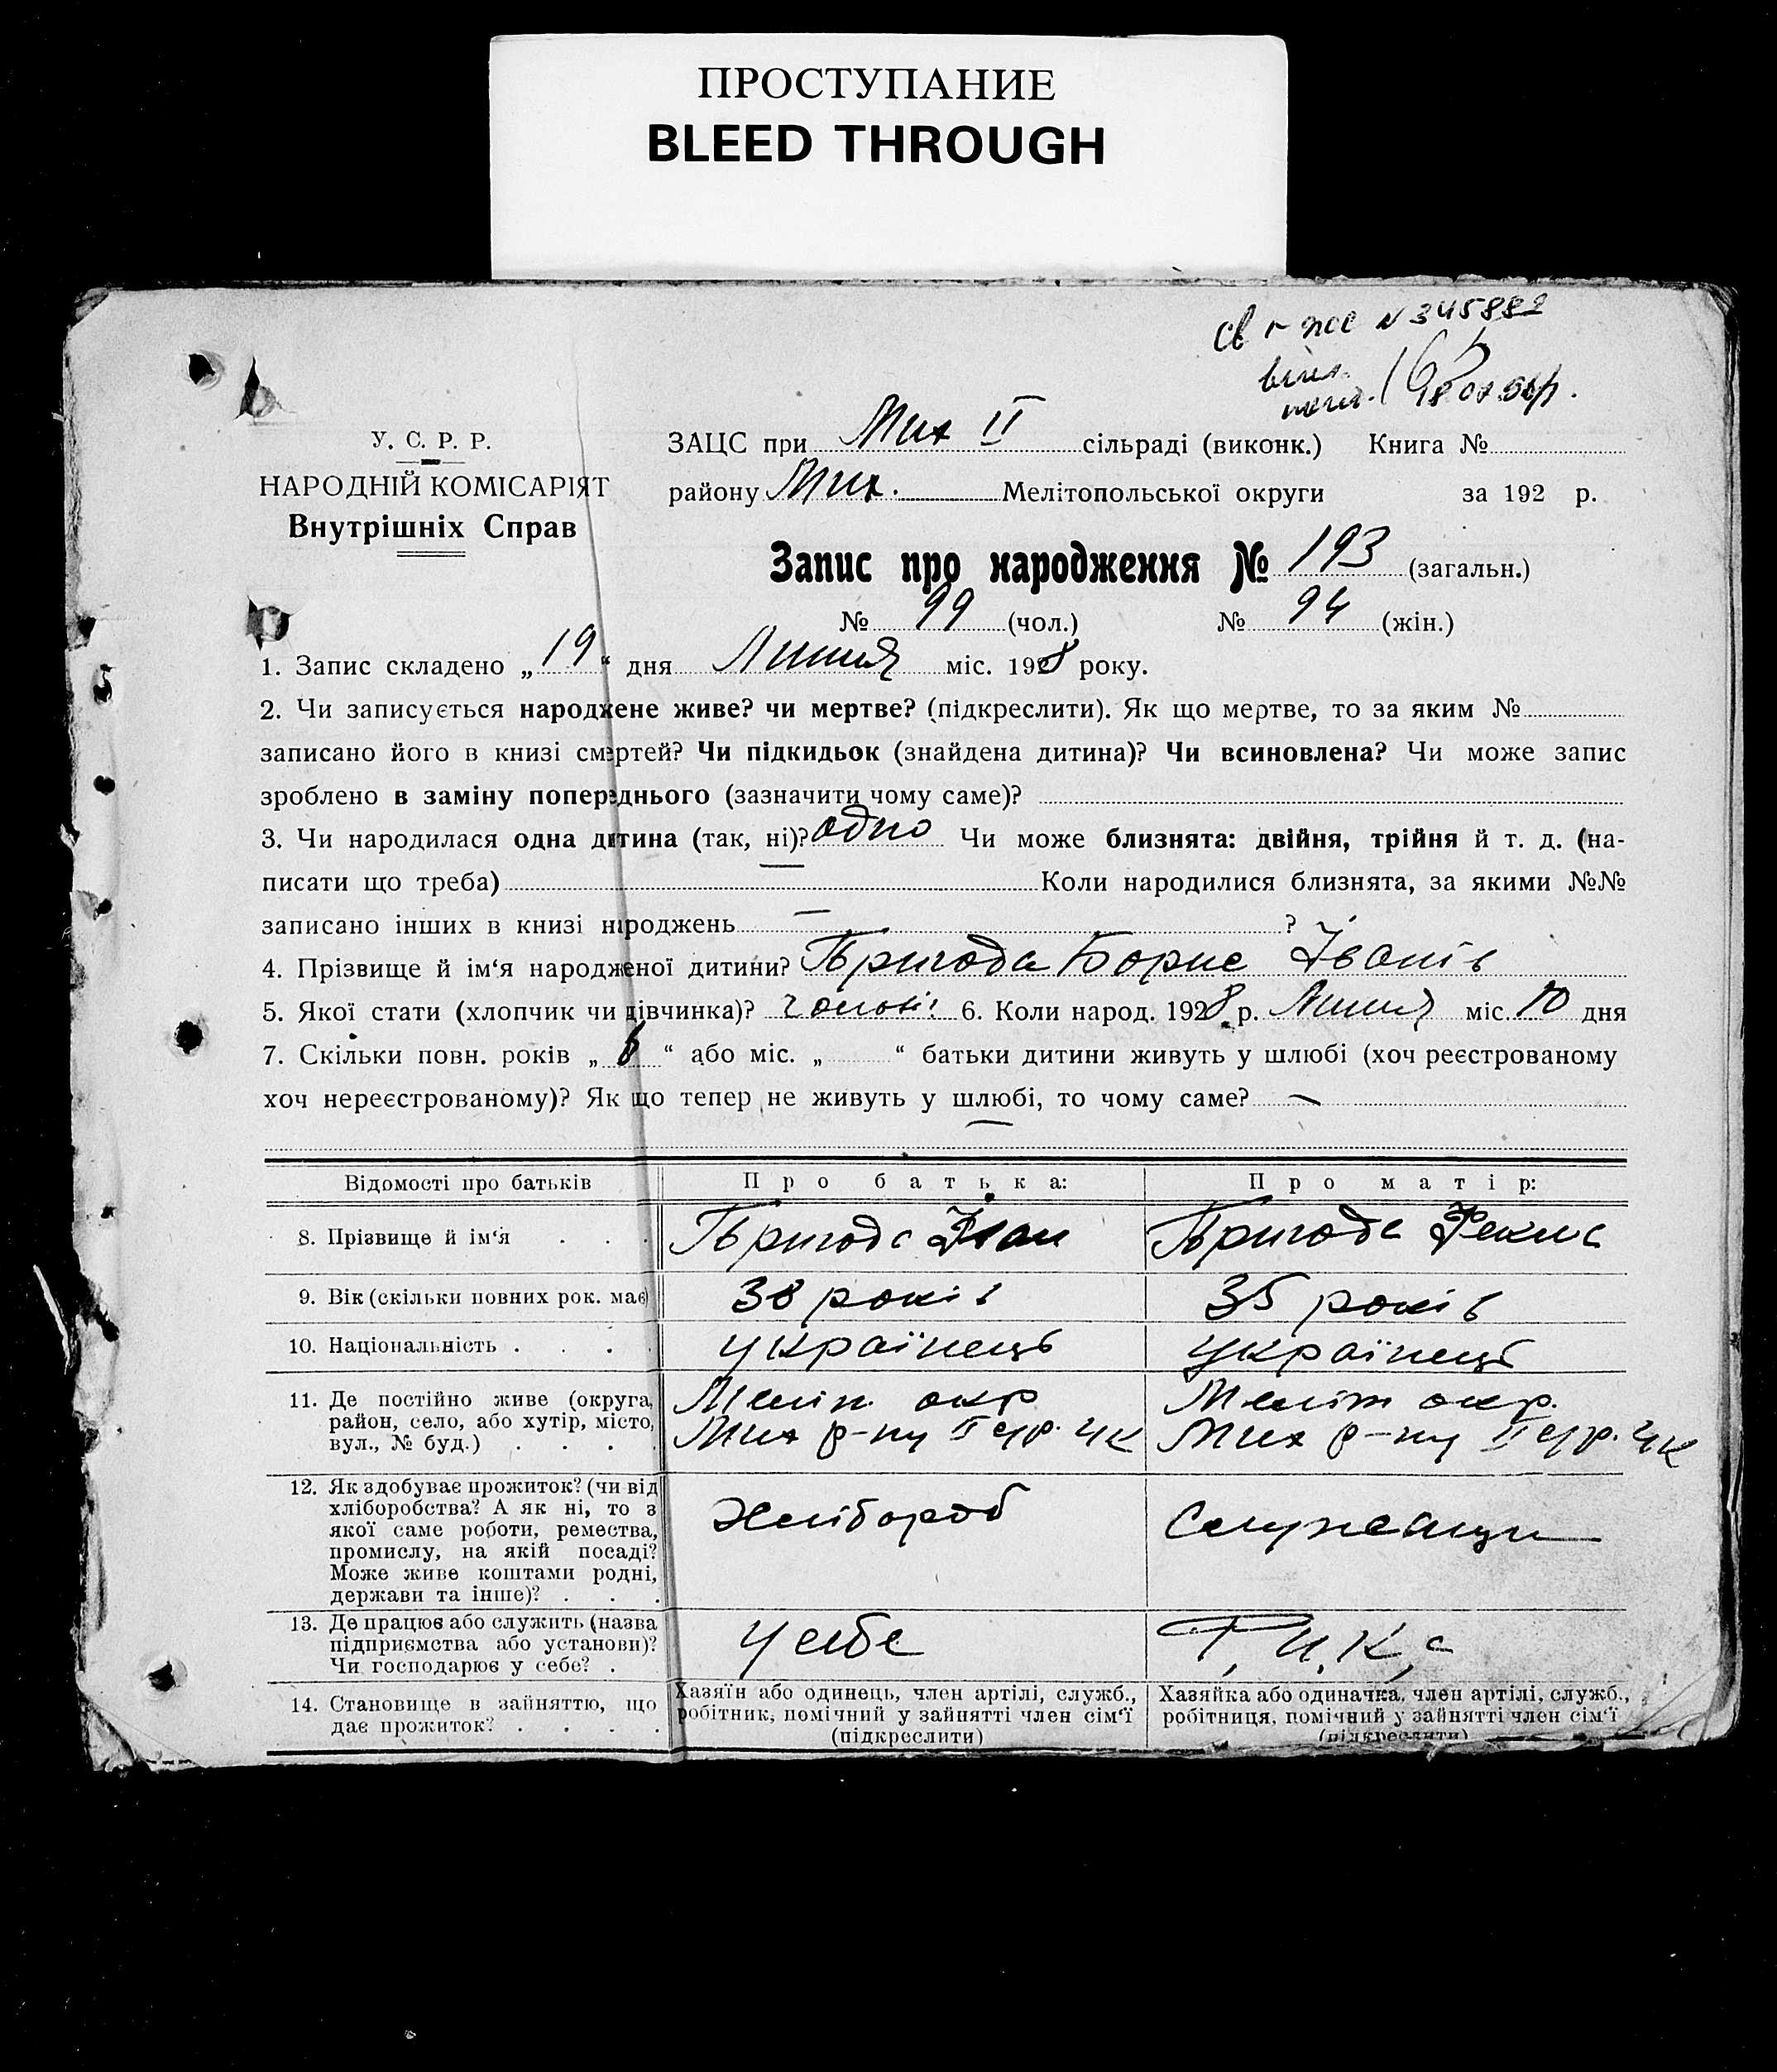 ПРОСТУПАНИЕ
BLEED THROUGH
№ 345882
У. С. Р. Р.
НАРОДНІЙ КОМІСАРІЯТ
Внутрішніх Справ
ЗАЦС при Мих II сільраді (виконк.) Книга №
району Мих. Мелітопольської округи за 192 р.
Запис про народження № 193 (загальн.)
№ 99 (чол.) № 94 (жін.)
1. Запис складено „19“ дня Липня міс. 1928 року.
2. Чи записується народжене живе? чи мертве? (підкреслити). Як що мертве, то за яким №
записано його в книзі смертей? Чи підкидьок (знайдена дитина)? Чи всиновлена? Чи може запис
зроблено в заміну попереднього (зазначити чому саме)?
3. Чи народилася одна дитина (так, ні)? одно Чи може близнята: двійня, трійня й т. д. (на-
писати що треба) Коли народилися близнята, за якими №№
записано інших в книзі народжень — ?
4. Прізвище й ім‘я народженої дитини? Пригода Борис Іванів
5. Якої стати (хлопчик чи дівчинка)? 6. Коли народ. 1928 р. Липня міс. 10 дня
7. Скільки повн. років „6“ або міс. „ “ батьки дитини живуть у шлюбі (хоч реєстрованому
хоч нереєстрованому)? Як що тепер не живуть у шлюбі, то чому саме? —
Відомості про батьків Про батька: Про матір:
8. Прізвище й ім‘я . . . Пригода Іван Пригода Фекла
9. Вік (скільки повних рок. має) 38 років 35 років
10. Національність . . . . українець українець
11. Де постійно живе (округа, Меліт. окр Меліт окр.
район, село, або хутір, місто, Мих р-ну II Мих р-ну II
вул., № буд.) . . . .
12. Як здобуває прожиток? (чи від
хліборобства? А як ні, то з Хлібороб
якої саме роботи, ремества, Служащи
промислу, на якій посаді?
Може живе коштами родні,
держави та інше)? . . .
13. Де працює або служить (назва
підприємства або установи)? у себе Р.И.К.
Чи господарює у себе? .
14. Становище в зайняттю, що Хазяїн або одинець, член артілі, служб., Хазяйка або одиначка, член артілі, служб.,
дає прожиток? . . . . робітник, помічний у зайнятті член сім‘ї робітниця, помічний у зайнятті член сім‘ї
(підкреслити) (підкреслити)